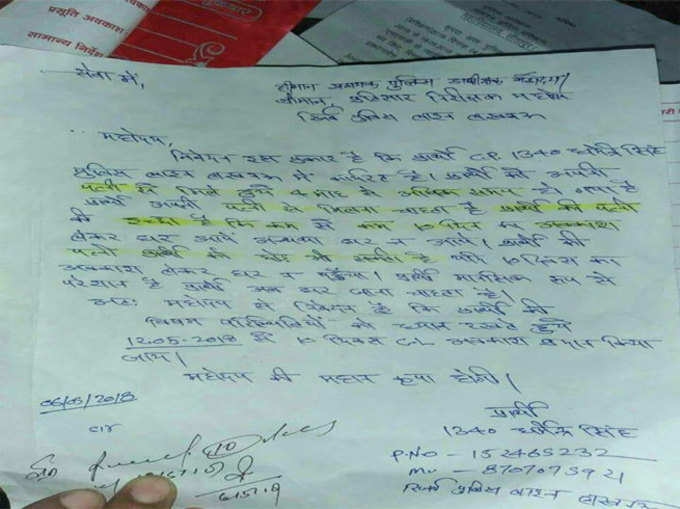 प्रसूति अवकाश
सामान्य निर्देश
सेवा में,
श्रीमान सहायक पुलिस अधीक्षक महोदय/
श्रीमान, प्रतिसार निरीक्षक महोदय
रिजर्व पुलिस लाइन लखनऊ
महोदय,
निवेदन इस प्रकार है कि प्रार्थी C.P. 1340 धर्मेन्द्र सिंह
पुलिस लाइन लखनऊ में कार्यरत है। प्रार्थी को अपनी
पत्नी से मिले हुये 4 माह से अधिक समय हो गया है
प्रार्थी अपनी पत्नी से मिलना चाहता है प्रार्थी की पत्नी
की इच्छा है कि कम से कम 10 दिवस का अवकाश
लेकर घर आये अन्यथा घर न आये। प्रार्थी की
पत्नी प्रार्थी को छोड़ भी सकती है यदि 10 दिवस का
अवकाश लेकर घर न पहुँचा। प्रार्थी मानसिक रूप से
परेशान है प्रार्थी अब घर जाना चाहता है।
अतः महोदय से निवेदन है कि प्रार्थी की
विषम परिस्थितियों को ध्यान रखते हुये
12.05-2018 से 10 दिवस C.L अवकाश प्रदान किया
जाय।
महोदय की महान कृपा होगी।
06/05/2018
प्रार्थी
1340 धर्मेन्द्र सिंह
P.NO - 152465232
रिजर्व पुलिस लाइन लखनऊ